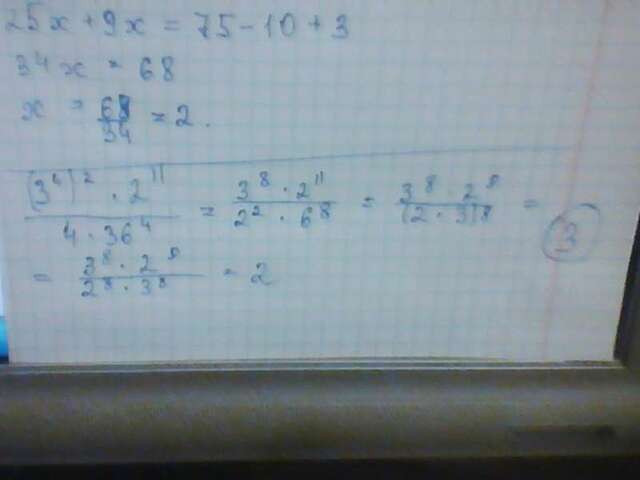 25x + 9x = 75 - 10 + 3
34x = 68
x = 68/34 = 2.
(3⁴)² · 2¹¹ / 4 · 36⁴ = 3⁸ · 2¹¹ / 2² · 6⁸ = 3⁸ · 2⁹ / (2 · 3)⁸ =
= 3⁸ · 2⁹ / 2⁸ · 3⁸ = 2